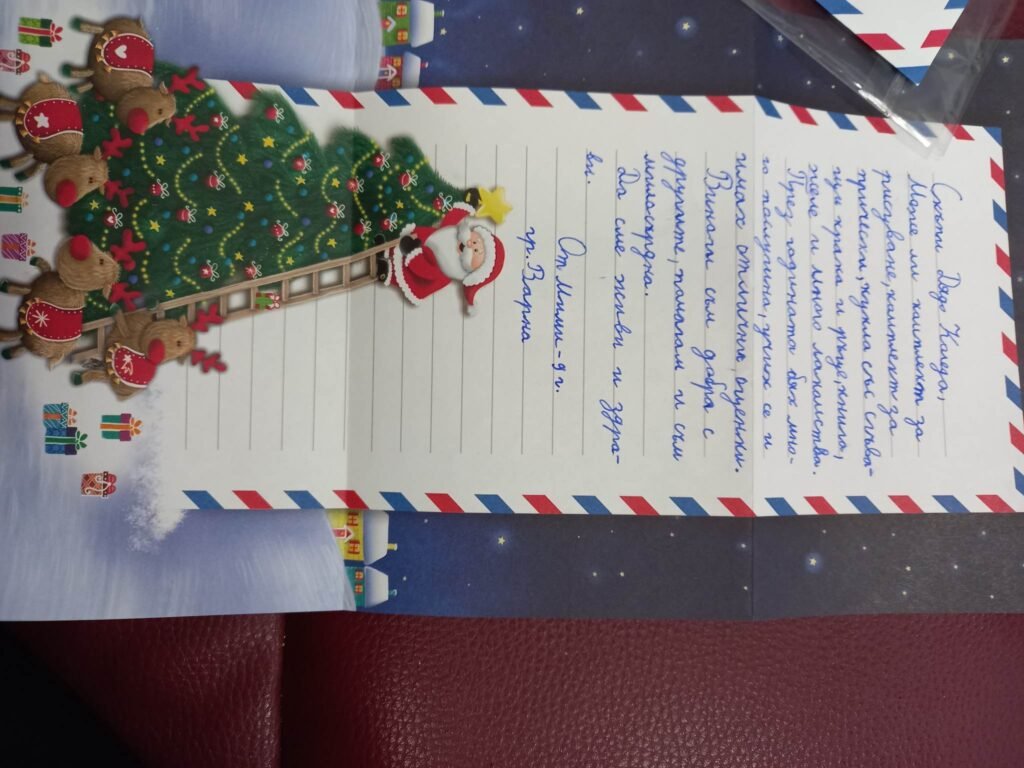 Скъпи Дядо Коледа,
Може ли комплект за
рисуване, комплект за
прически, кукла със сгъва-
щи крака и ръце, книга,
желе и много лакомства.
През годината бях мно-
го послушна, учих се и
имах отлични оценки.
Винаги съм добра с
другите, помагам и съм
милосърдна.
Да сме живи и здра-
ви.
От Мими - 9 г.
гр. Варна